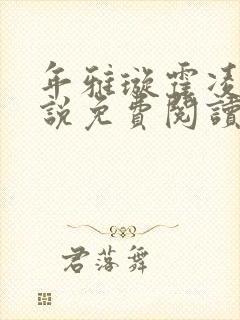 年雅璇霍凌
說免費閱讀
君落舞